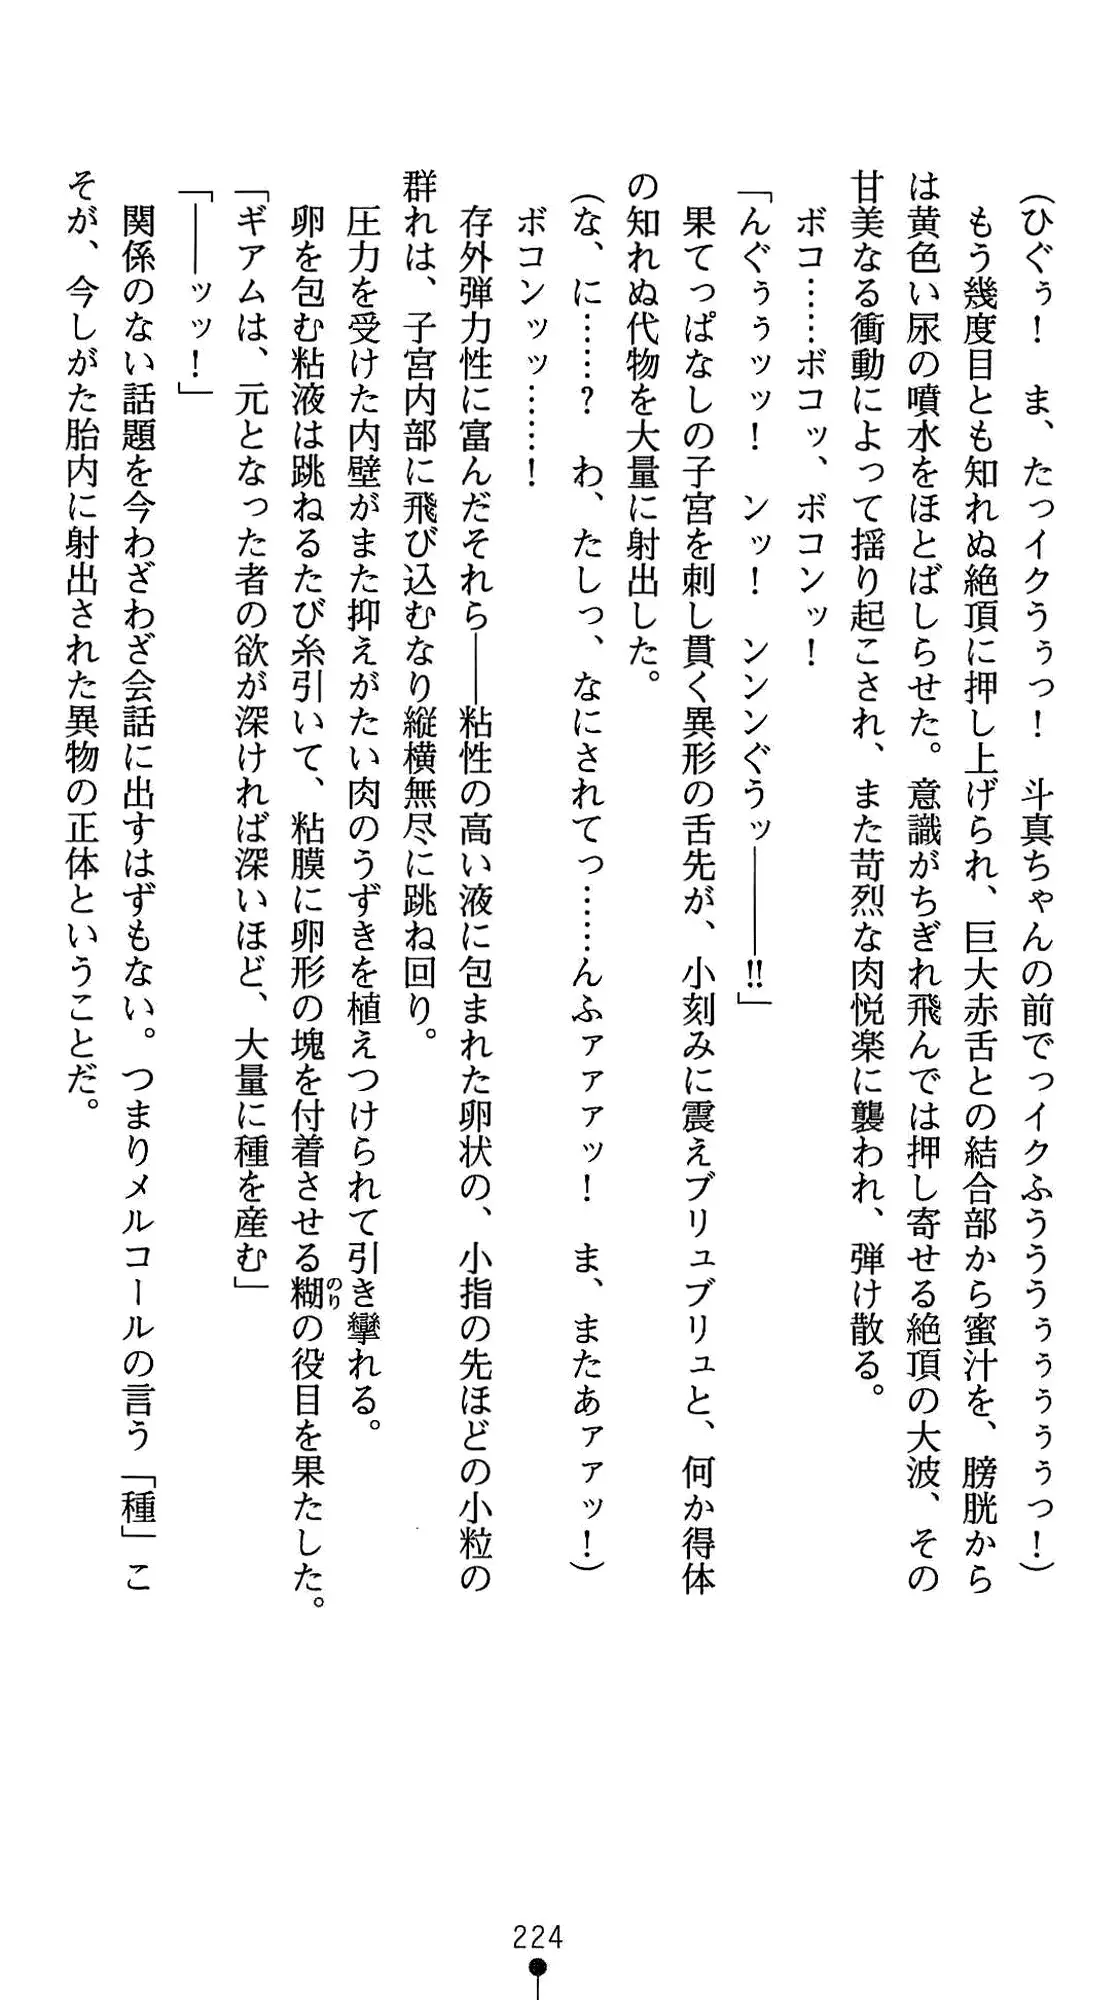 （ひぐぅ！　ま、たっイクうぅっ！　斗真ちゃんの前でっイクふうううぅぅぅぅぅっ！）
もう幾度目とも知れぬ絶頂に押し上げられ、巨大赤舌との結合部から蜜汁を、膀胱から
は黄色い尿の噴水をほとばしらせた。意識がちぎれ飛んでは押し寄せる絶頂の大波、その
甘美なる衝動によって揺り起こされ、また苛烈な肉悦楽に襲われ、弾け散る。
ボコ……ボコッ、ボコンッ！
「んぐぅぅッッ！　ンッ！　ンンンぐうッ――――‼」
果てっぱなしの子宮を刺し貫く異形の舌先が、小刻みに震えブリュブリュと、何か得体
の知れぬ代物を大量に射出した。
（な、に……？　わ、たしっ、なにされてっ……んふァァァッ！　ま、またあァァッ！）
ボコンッッ……！
存外弾力性に富んだそれら――粘性の高い液に包まれた卵状の、小指の先ほどの小粒の
群れは、子宮内部に飛び込むなり縦横無尽に跳ね回り。
圧力を受けた内壁がまた抑えがたい肉のうずきを植えつけられて引き攣れる。
卵を包む粘液は跳ねるたび糸引いて、粘膜に卵形の塊を付着させる糊の役目を果たした。
のり
「ギアムは、元となった者の欲が深ければ深いほど、大量に種を産む」
「――ッッ！」
関係のない話題を今わざわざ会話に出すはずもない。つまりメルコールの言う「種」こ
そが、今しがた胎内に射出された異物の正体ということだ。
224